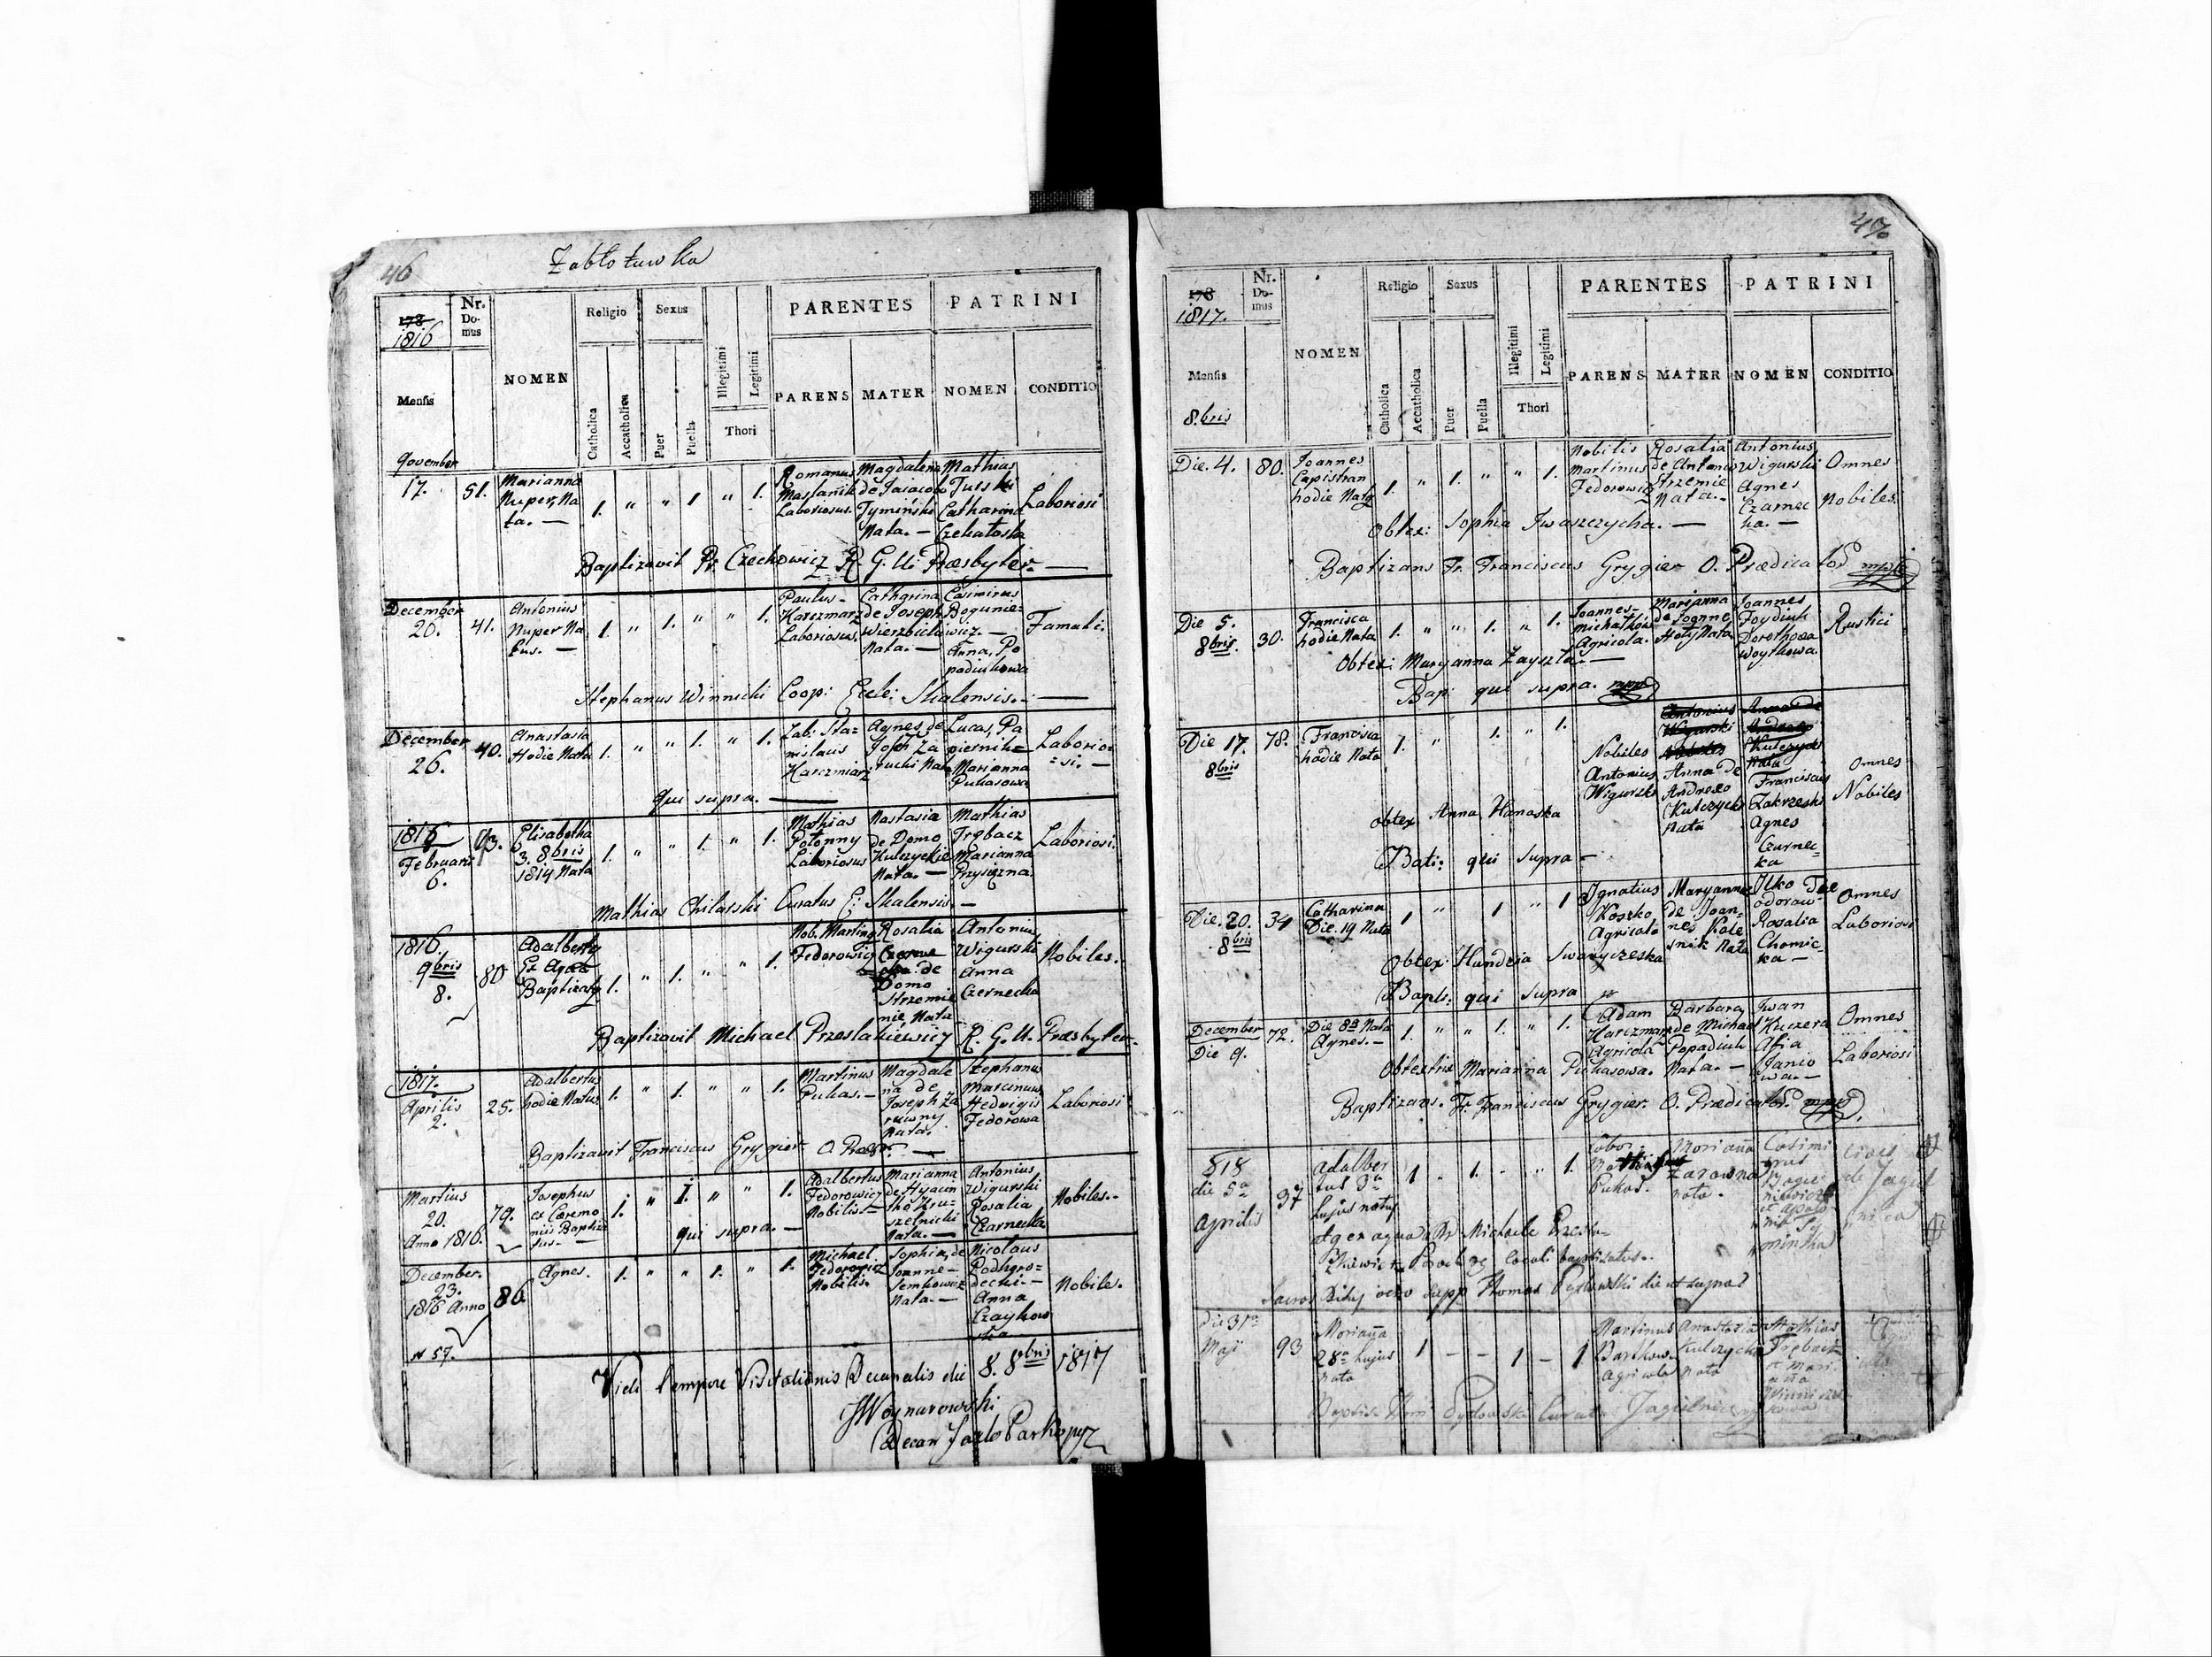 46
Zabłotuwka
178
1816
Nr. Do- mus
NOMEN
Religio
Sexus
PARENTES
PATRINI
Mensis
Catholica
Accatholica
Puer
Puella
Illegitimi
Legitimi
Thori
PARENS
MATER
NOMEN
CONDITIO
9ovember
17.
51.
Marianna
Nuper, Na
ta. —
1. " " 1 " 1.
Romanus
Maslanik
Laboriosus.
Magdalena
Tyminski
Nata. —
Mathias
Turski
Catharina
Czekatoska
Laboriosi
Baptizavit Pr. Czechowicz R. G. U. Præsbyter. —
December
20.
41.
Antonius
Nuper Na
tus. —
1. " 1. " " 1.
Paulus
Harczmarz
Laboriosus.
Catharina
de Joseph
Wierzbicki
Nata. —
Casimirus
Bogunie=
wicz. —
Anna, Po
padiukowa
Famati.
Stephanus Winnicki Coop: Eccle: Skalensis. —
December
26.
40.
Anastasia
Hodie Nata
1. " " 1. " 1.
Lab. Sta=
nilaus
Harczmarz
Agnes de
Jos
Za
rucki Nata
Lucas, Pa
piernik=
Marianna
Pukasowa
Laborio=
=si. —
Qui supra. —
1816
Februarii
6.
43.
Elisabetha
3. 8bris
1814 Nata
1. " " 1. " 1.
Mathias
Potonny
Laboriosus
Nastasia
de Domo
Kulczyckie
Nata. —
Mathias
Trębacz
Marianna
Przysiezna.
Laboriosi.
Mathias Chilarski Curatus E: Skalensis. —
1816.
9bris
8.
80
Adalberty
Ex Aqua
Baptizaty
1. " 1. " " 1.
Nob. Marting
Fedorowicz
Rosalia
de
Domo
Strzemie
nie Nata
Antonius
Wigurski
Anna
Czernecka
Nobiles.
Baptizavit Michael Przeslakiewicz R. G. U. Præsbyter.
1817.
Aprilis
2.
25.
Adalbertus
hodie Natus
1. " 1. " " 1.
Martinus
Pukas. —
Magdale
na de
Joseph Za
ruwny
Nata.
Stephanus
Marcinuw
Hedwigis
Fedorowa
Laboriosi
Baptizavit Franciscus Grygier O.
Martius
20.
Anno 1816.
79.
Josephus
ex Ceremo
niis Baptiz
sus. —
1. " 1. " " 1.
Adalbertus
Fedorowicz
Nobilis. —
Marianna
de Hyacin
tho Kru=
szelnicki
Nata. —
Antonius
Wigurski
Rosalia
Czarnecka
Nobiles. -
qui supra. —
December.
23.
1816 Anno
86.
Agnes.
1. " " 1. " 1.
Michael
Fedorowicz
Nobilis.
Sophia, de
Joanne
Semkowicz
Nata. —
Nicolaus
Podhoro=
decki. —
Anna
Czaykow
ska
Nobiles.
N 57.
Vidi tempore Visitationis Decanalis die 8. 8bris 1817
JWoynarowski
Decan Jazlo Par
47
178
1817.
Nr. Do- mus
NOMEN
Religio
Sexus
PARENTES
PATRINI
Mensis
8bris
Catholica
Accatholica
Puer
Puella
Illegitimi
Legitimi
Thori
PARENS
MATER
NOMEN
CONDITIO
Die. 4.
80.
Joannes
Capistran
hodie Natg
1. " 1. " " 1.
Nobilis
Martinus
Fedorowicz
Rosalia
de Antonio
Strzemie
Nata. -
Antonius
Wigurski
Agnes
Czarnec
ka. —
Omnes
Nobiles.
Obtex: Sophia Iwaszczycha. —
Baptizans Fr. Franciscus Grygier O. Prædicatos mpp
Die 5.
8bris.
30.
Francisca
hodie Nata
1. " " 1. " 1.
Joannes
Michałków
Agricola.
Marijanna
de Joanne
Hoły Nata
Joannes
Foydiuk
Dorothoea
Woytkowa.
Rustici
Obtex: Maryanna Zayszła. —
Bap: qui supra. mpp
Die 17.
8bris
78.
Francisca
hodie Nata
1. " 1. 1.
Antonius
Wigurski
Nobiles
Anna de
Andreo
Kulczycki
Nata
Nobiles
Antonius
Wigurski
Anna De
Andreo
Kulczycki
Nata
Franciscus
Zakrzeski
Agnes
Czarnec=
ka
Omnes
Nobiles
Obtex Anna Hanaska
Bati: qui supra —
Die. 20.
8bris
34
Catharina
Die. 19 Nata
1 " 1 " 1
Ignatius
Koszko
Agricola
Maryanna
de Joan=
nes Kole
snik Nata
Ilko Te
odorow
Rosalia
Chomic=
ka —
Omnes
Laboriosi
Obtex: Hundzia Iwanyczeska
Bapti: qui supra
December
Die 9.
72.
Die 8a Nata
Agnes. —
1. " " 1. " 1.
Adam
Harczmarz
Agricola
Barbara
de Michael
Popadiuk
Nata. —
Iwan
Kuczera
Afia
Janio
wa. —
Omnes
Laboriosi
Obtextrix Marianna Pukasowa.
Baptizans. Fr. Franciscus Grygier. O. Prædicatos. mpp.
818
die 5a
Aprilis
37
Adalber
tus 3a
hujus natus
1 - 1. - " 1.
Labo
Pukas.
Marianna
Zarowna
nata.
Casimi
rus
Bogu
niewicz
et Apolo
nia
cives
de Jagiel
nica
et ex aqua a Pr Michaele Przesla=
kiewicz Paroch gc locali baptisatus.
Sacros Ritus ordo supp Thomas Pydowski die ut supra
Die 31a
Maji
93
Marianna
28a hujus
nata
1 - - 1 - 1
Martinus
Barthow.
agricola
Anastasia
Kulczycka
nata
Mathias
Trębacz
et Mari
anna
Baptis. Thom Pydowski Curatus Jagielnicę